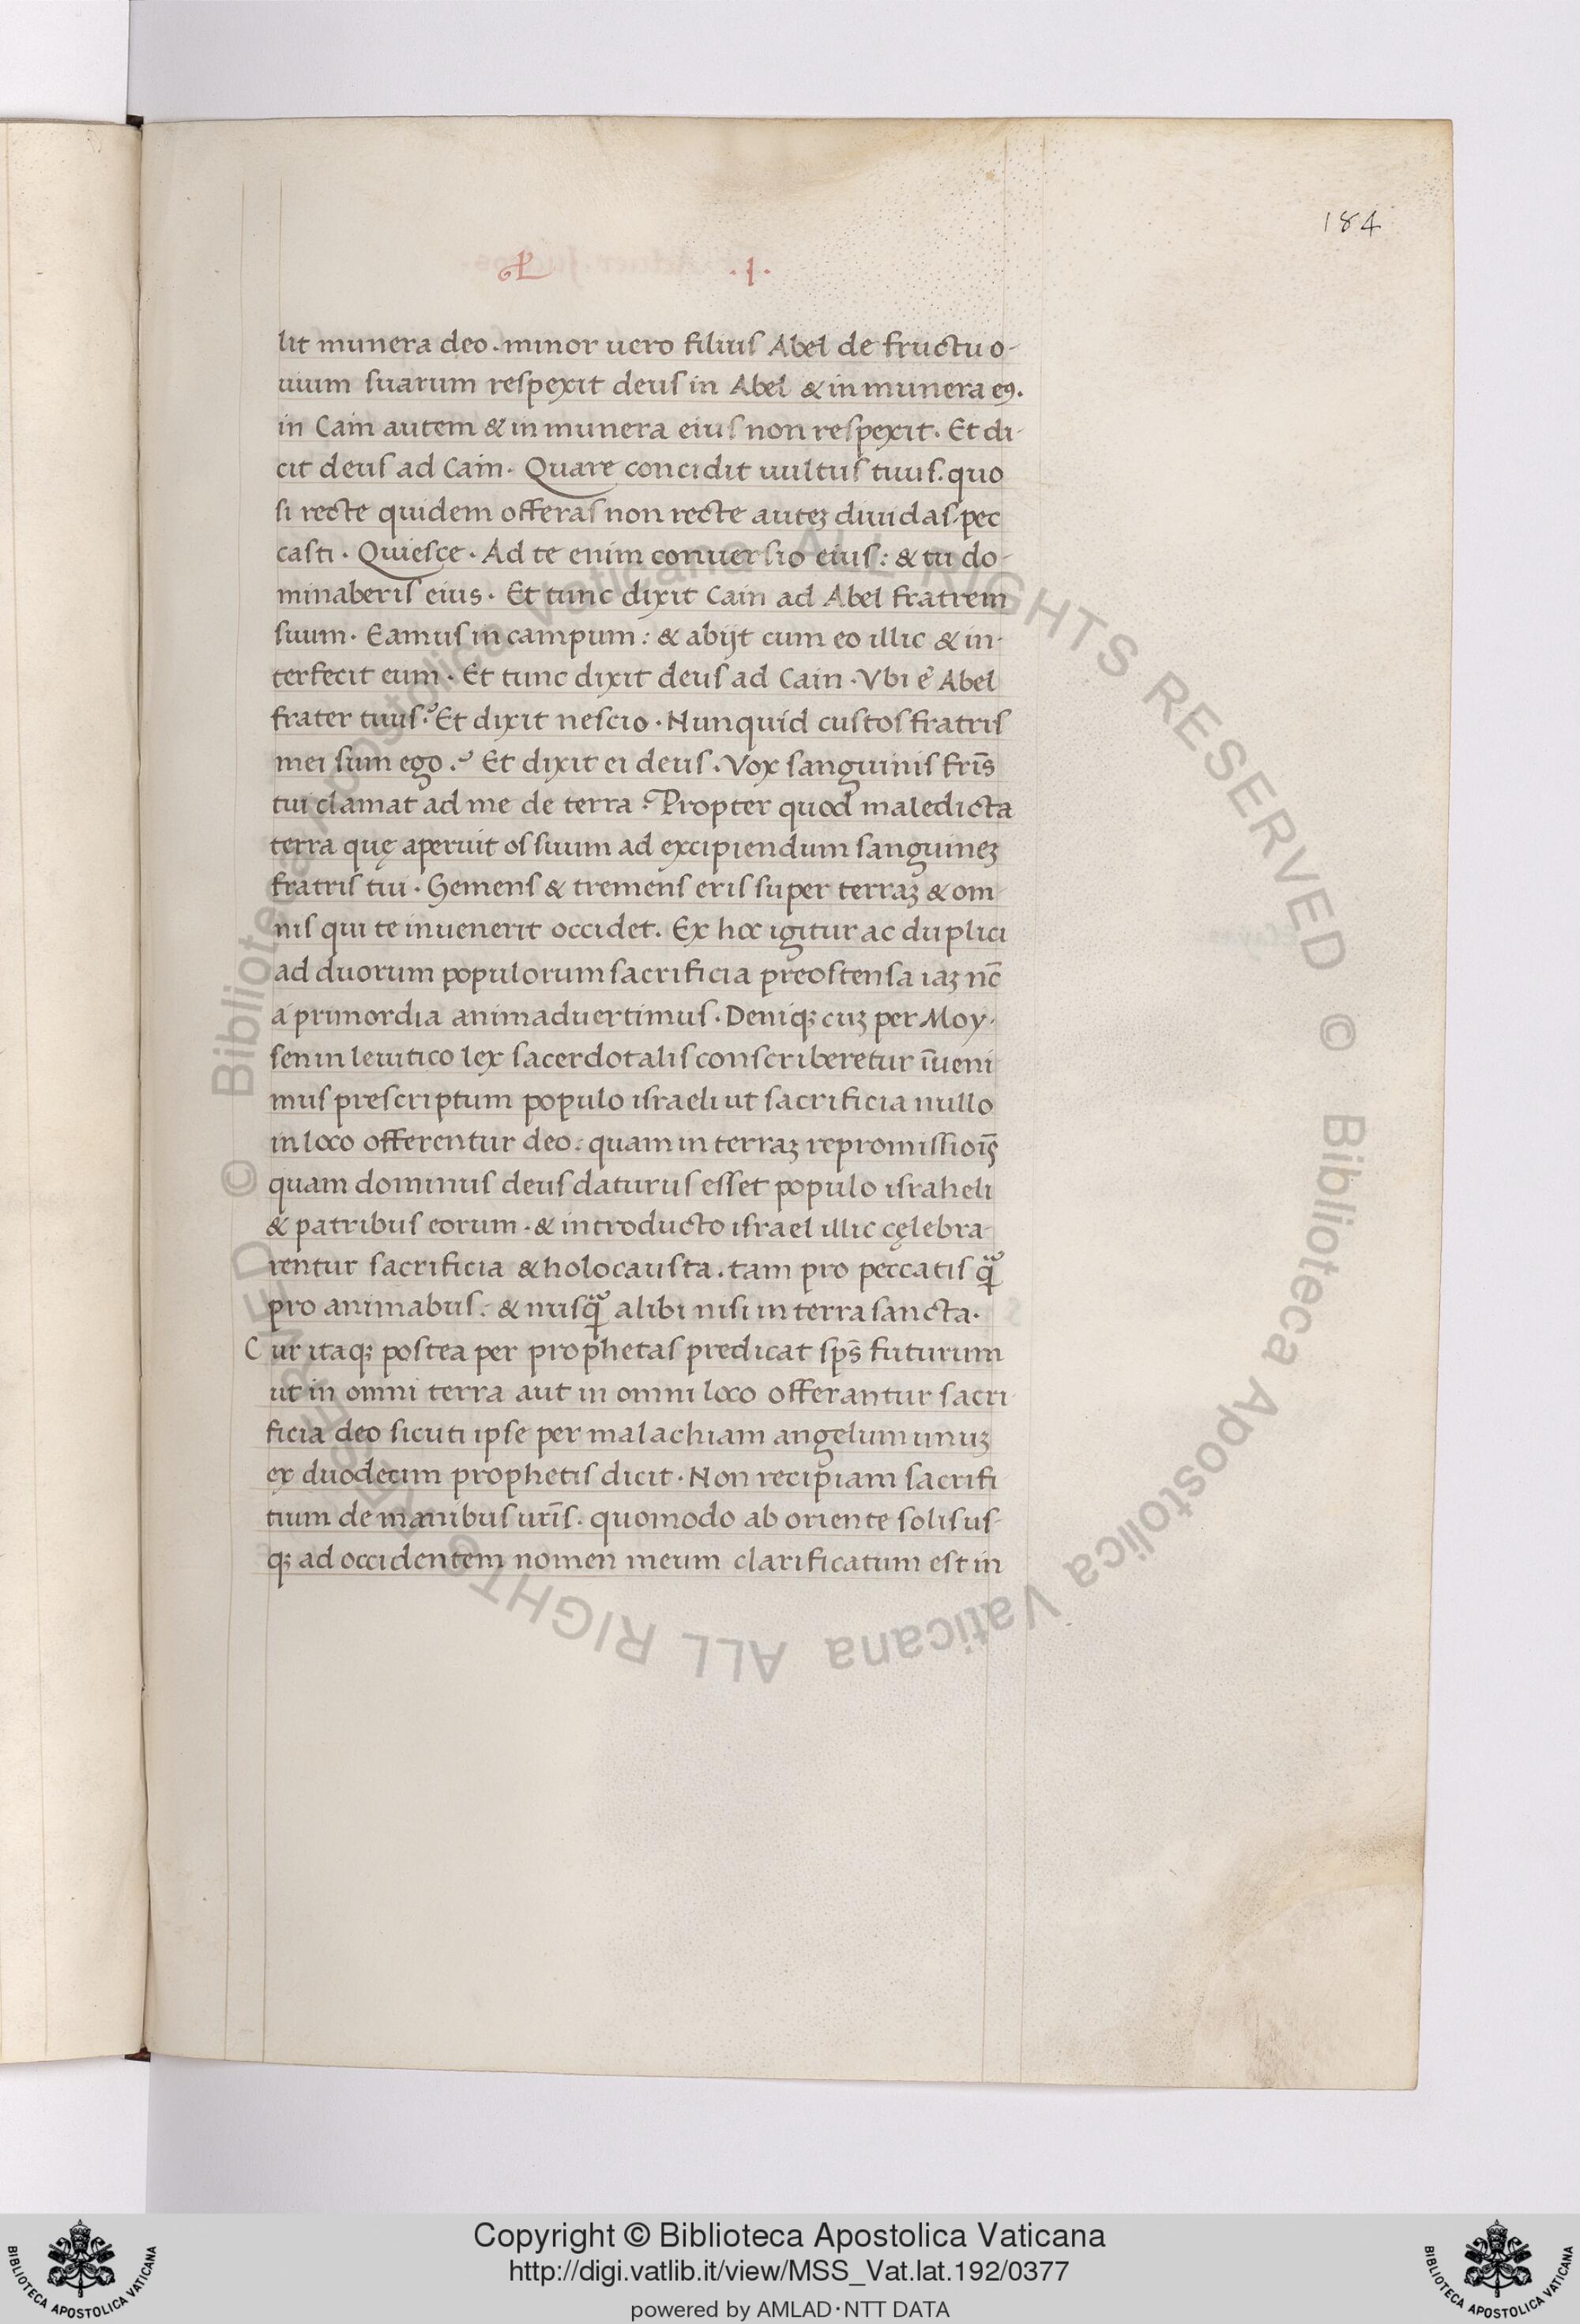 184
.I.
lit munera deo. minor uero filius Abel de fructu o-
uium suarum respexit deus in Abel & in munera eꝰ.
in Cain autem & in munera eius non respexit. Et di-
cit deus ad Cain. Quare concidit uultus tuus. quo
si recte quidem offeras non recte auteꝫ diuidas. pec
casti. Quiesce. Ad te enim conuersio eius: & tu do-
minaberis eius. Et tunc dixit Cain ad Abel fratrem
suum. Eamus in campum: & abijt cum eo illic & in-
terfecit eum. Et tunc dixit deus ad Cain. Vbi ē Abel
frater tuus? Et dixit nescio. Nunquid custos fratris
mei sum ego? Et dixit ei deus. Vox sanguinis fr̄is
tui clamat ad me de terra? Propter quod maledicta
terra quę aperuit os suum ad excipiendum sanguineꝫ
fratris tui. Gemens & tremens eris super terraꝫ & om
nis qui te inuenerit occidet. Ex hoc igitur ac duplici
ad duorum populorum sacrificia preostensa iaꝫ nc̄
á primordia animaduertimus. Deniqꝫ cuꝫ per Moy-
sen in leuitico lex sacerdotalis conscriberetur īueni
mus prescriptum populo israeli ut sacrificia nullo
in loco offerentur deo: quam in terraꝫ repromissioīs
quam dominus deus daturus esset populo israheli
& patribus eorum. & introducto israel illic cęlebra-
rentur sacrificia & holocausta. tam pro peccatis qᷓ
pro animabus: & nusqᷓ alibi nisi in terra sancta.
Cur itaqꝫ postea per prophetas predicat sp̄s futurum
ut in omni terra aut in omni loco offerantur sacri
ficia deo sicuti ipse per malachiam angelum unuꝫ
ex duodecim prophetis dicit. Non recipiam sacrifi
tium de manibus ur̄is. quomodo ab oriente solis us-
qꝫ ad occidentem nomen meum clarificatum est in
© Biblioteca Apostolica Vaticana ALL RIGHTS RESERVED © Biblioteca Apostolica Vaticana ALL RIGHTS RESERVED
BIBLIOTECA APOSTOLICA VATICANA
Copyright © Biblioteca Apostolica Vaticana
http://digi.vatlib.it/view/MSS_Vat.lat.192/0377
powered by AMLAD·NTT DATA
BIBLIOTECA APOSTOLICA VATICANA